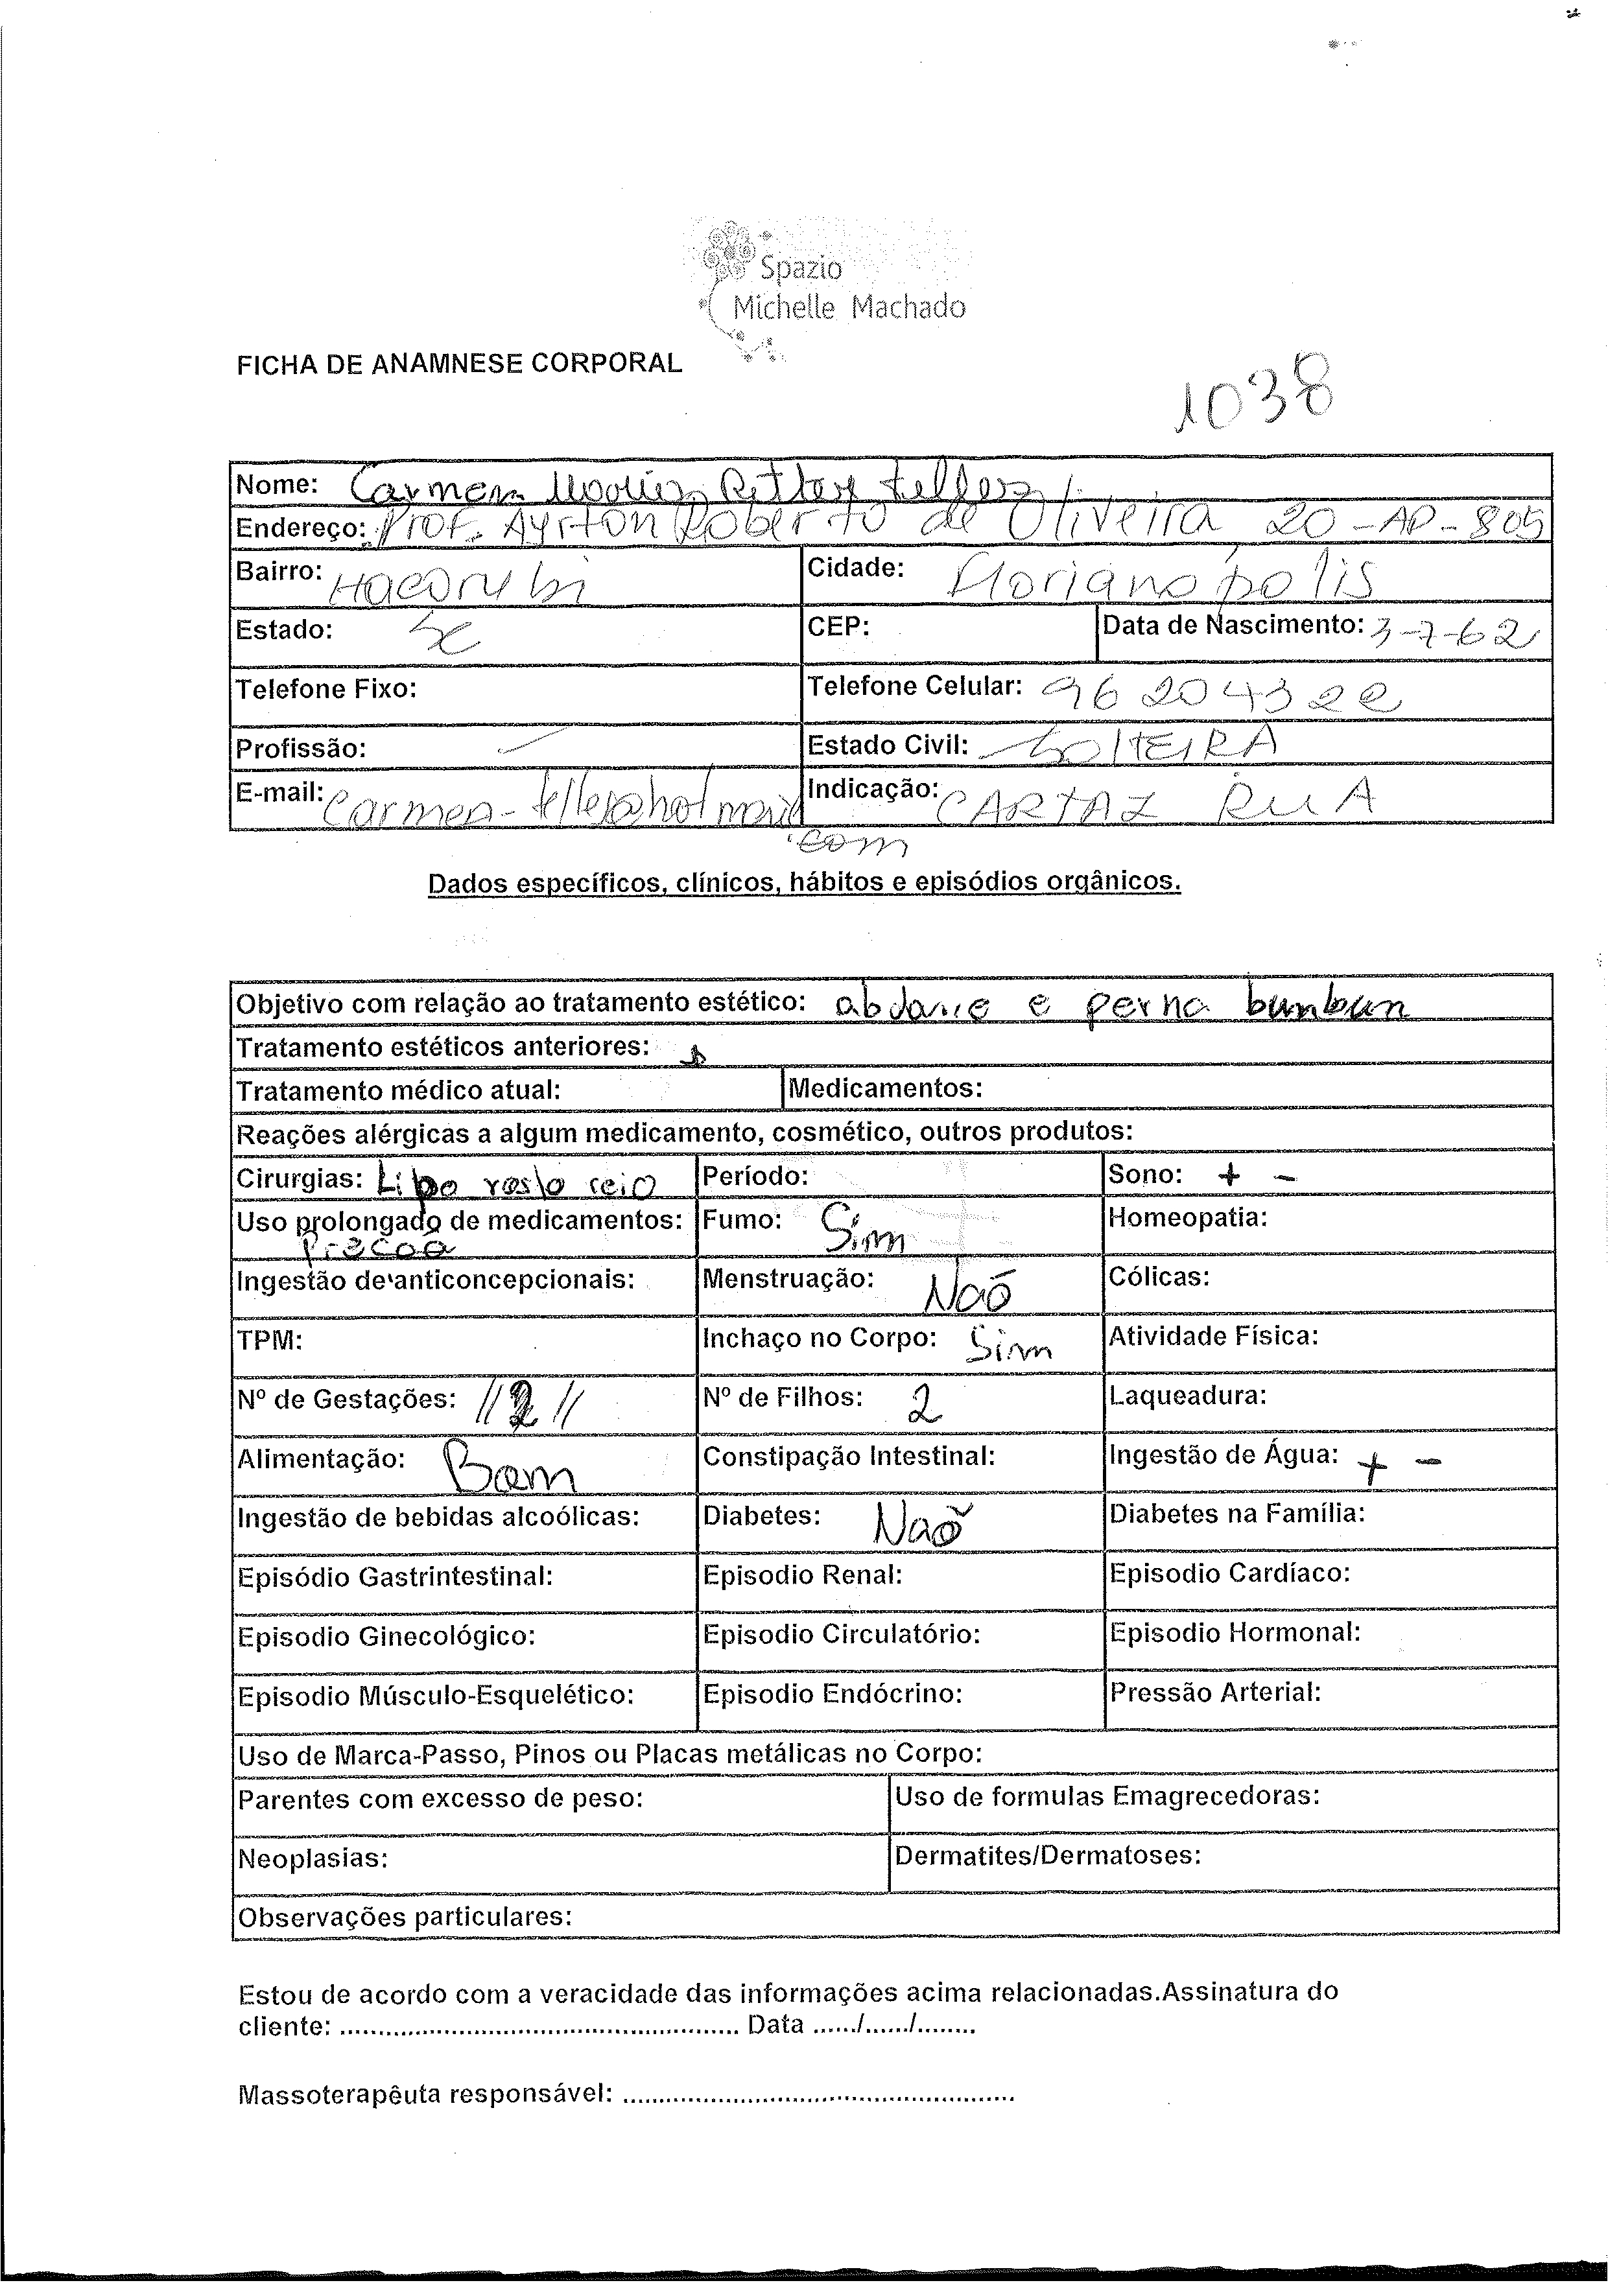 Spazio
Michelle Machado
FICHA DE ANAMNESE CORPORAL
1038
Nome: Carmen Ritter Telles
Endereço: Prof. Ayrton Roberto de Oliveira 20 - AP - 805
Bairro: Itacorubi Cidade: Florianópolis
Estado: SC CEP: Data de Nascimento: 3-7-62
Telefone Fixo: Telefone Celular: 96204322
Profissão: Estado Civil: SOLTEIRA
E-mail: Carmen-telles@hotmail Indicação: CARTAZ RUA
.com
Dados específicos, clínicos, hábitos e episódios orgânicos.
Objetivo com relação ao tratamento estético: e perna bumbun
Tratamento estéticos anteriores:
Tratamento médico atual: Medicamentos:
Reações alérgicas a algum medicamento, cosmético, outros produtos:
Cirurgias: Lipo rosto seio Período: Sono: + -
Uso prolongado de medicamentos: Fumo: Sim Homeopatia:
Ingestão de anticoncepcionais: Menstruação: Naõ Cólicas:
TPM: Inchaço no Corpo: Sim Atividade Física:
Nº de Gestações: //2// Nº de Filhos: 2 Laqueadura:
Alimentação: Bem Constipação Intestinal: Ingestão de Água: + -
Ingestão de bebidas alcoólicas: Diabetes: Naõ Diabetes na Família:
Episódio Gastrintestinal: Episodio Renal: Episodio Cardíaco:
Episodio Ginecológico: Episodio Circulatório: Episodio Hormonal:
Episodio Músculo-Esquelético: Episodio Endócrino: Pressão Arterial:
Uso de Marca-Passo, Pinos ou Placas metálicas no Corpo:
Parentes com excesso de peso: Uso de formulas Emagrecedoras:
Neoplasias: Dermatites/Dermatoses:
Observações particulares:
Estou de acordo com a veracidade das informações acima relacionadas.Assinatura do
cliente: .................................................... Data ....../....../........
Massoterapêuta responsável: ....................................................